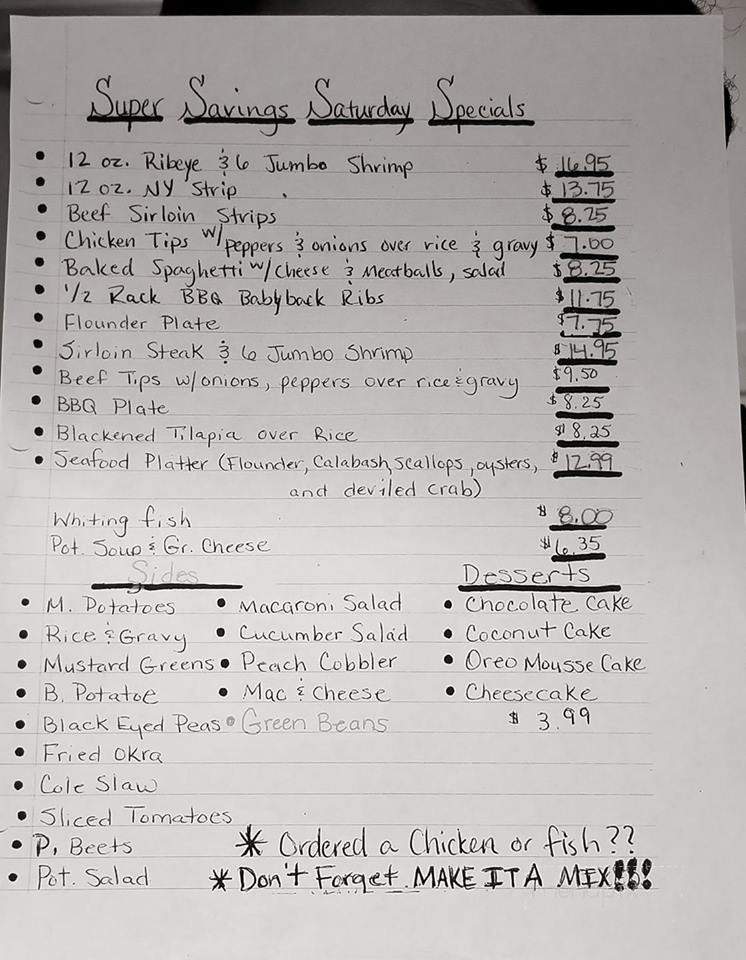 Super Savings Saturday Specials
• 12 oz. Ribeye & 6 Jumbo Shrimp $ 16.95
• 12 oz. NY Strip . $ 13.75
• Beef Sirloin Strips $ 8.25
• Chicken Tips w/peppers & onions over rice & gravy $ 7.00
• Baked Spaghetti w/cheese & Meatballs, salad $ 8.25
• 1/2 Rack BBQ Babyback Ribs $ 11.75
• Flounder Plate $7.75
• Sirloin Steak & 6 Jumbo Shrimp $ 14.95
• Beef Tips w/onions, peppers over rice & gravy $9.50
• BBQ Plate $ 8.25
• Blackened Tilapia over Rice $ 8.25
• Seafood Platter (Flounder, Calabash, Scallops, oysters, $ 12.99
and deviled crab)
Whiting fish $ 8.00
Pot. Soup & Gr. Cheese $6.35
Sides Desserts
• M. Potatoes • Macaroni Salad • Chocolate Cake
• Rice & Gravy • Cucumber Salad • Coconut Cake
• Mustard Greens • Peach Cobbler • Oreo Mousse Cake
• B. Potatoe • Mac & Cheese • Cheesecake
• Black Eyed Peas • Green Beans $ 3.99
• Fried Okra
• Cole Slaw
• Sliced Tomatoes
• P. Beets * Ordered a Chicken or fish??
• Pot. Salad * Don't Forget MAKE IT A MIX!!!